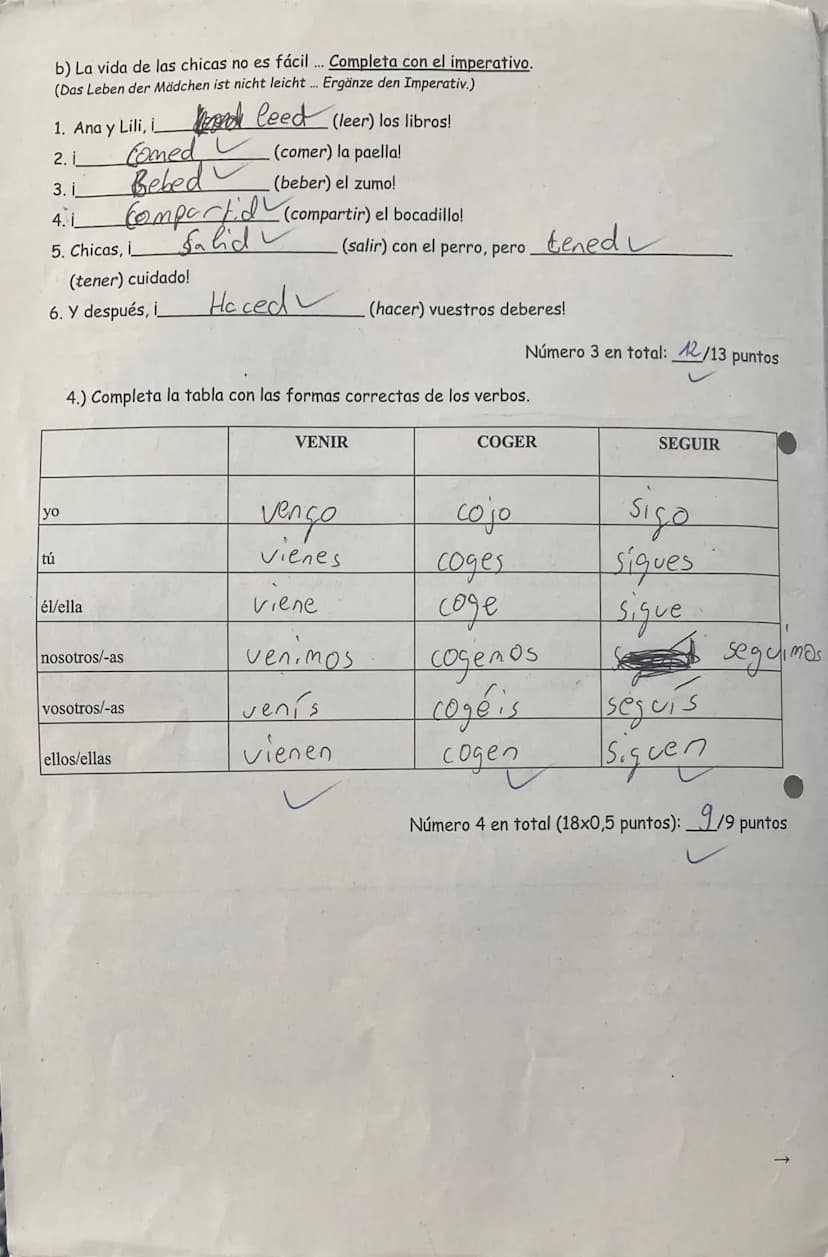 b) La vida de las chicas no es fácil ... Completa con el imperativo.
(Das Leben der Mädchen ist nicht leicht ... Ergänze den Imperativ.)
1. Ana y Lili, ¡ leed (leer) los libros!
2. ¡ Comed (comer) la paella!
3. ¡ Bebed (beber) el zumo!
4. ¡ Compartid (compartir) el bocadillo!
5. Chicas, ¡ Salid (salir) con el perro, pero tened
(tener) cuidado!
6. Y después, ¡ Haced (hacer) vuestros deberes!
Número 3 en total: 12/13 puntos
4.) Completa la tabla con las formas correctas de los verbos.
VENIR COGER SEGUIR
yo vengo cojo sigo
tú vienes coges sígues
él/ella viene coge sigue
nosotros/-as venimos cogemos seguimos
vosotros/-as venís cogéis seguís
ellos/ellas vienen cogen siguen
Número 4 en total (18x0,5 puntos): 9/9 puntos
→